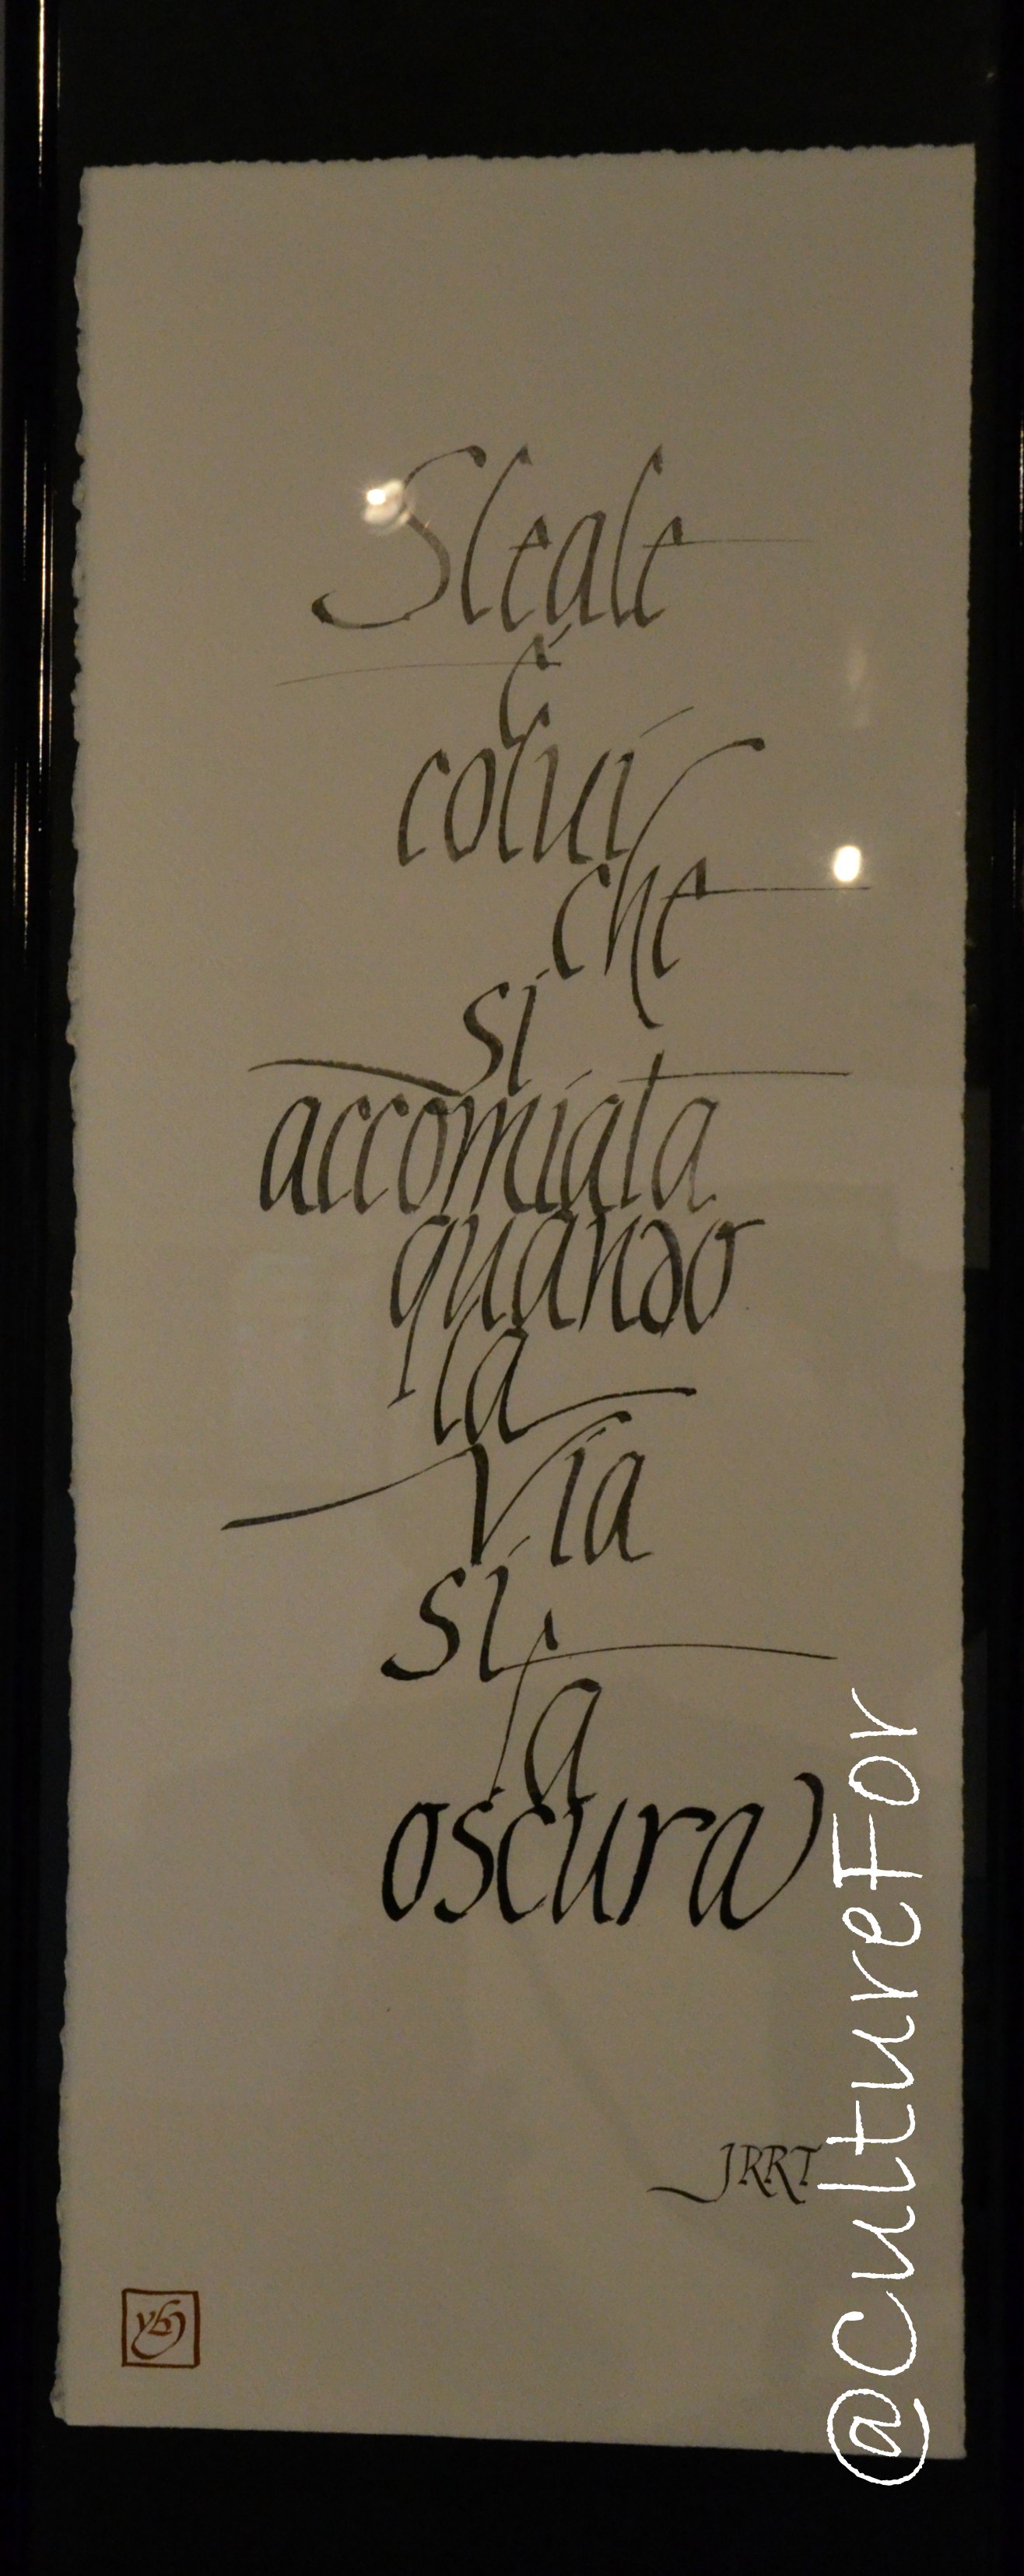 Sleale
è
colui
che
si
accomiata
quando
la
Via
si
fa
oscura
JRRT
@CultureFor